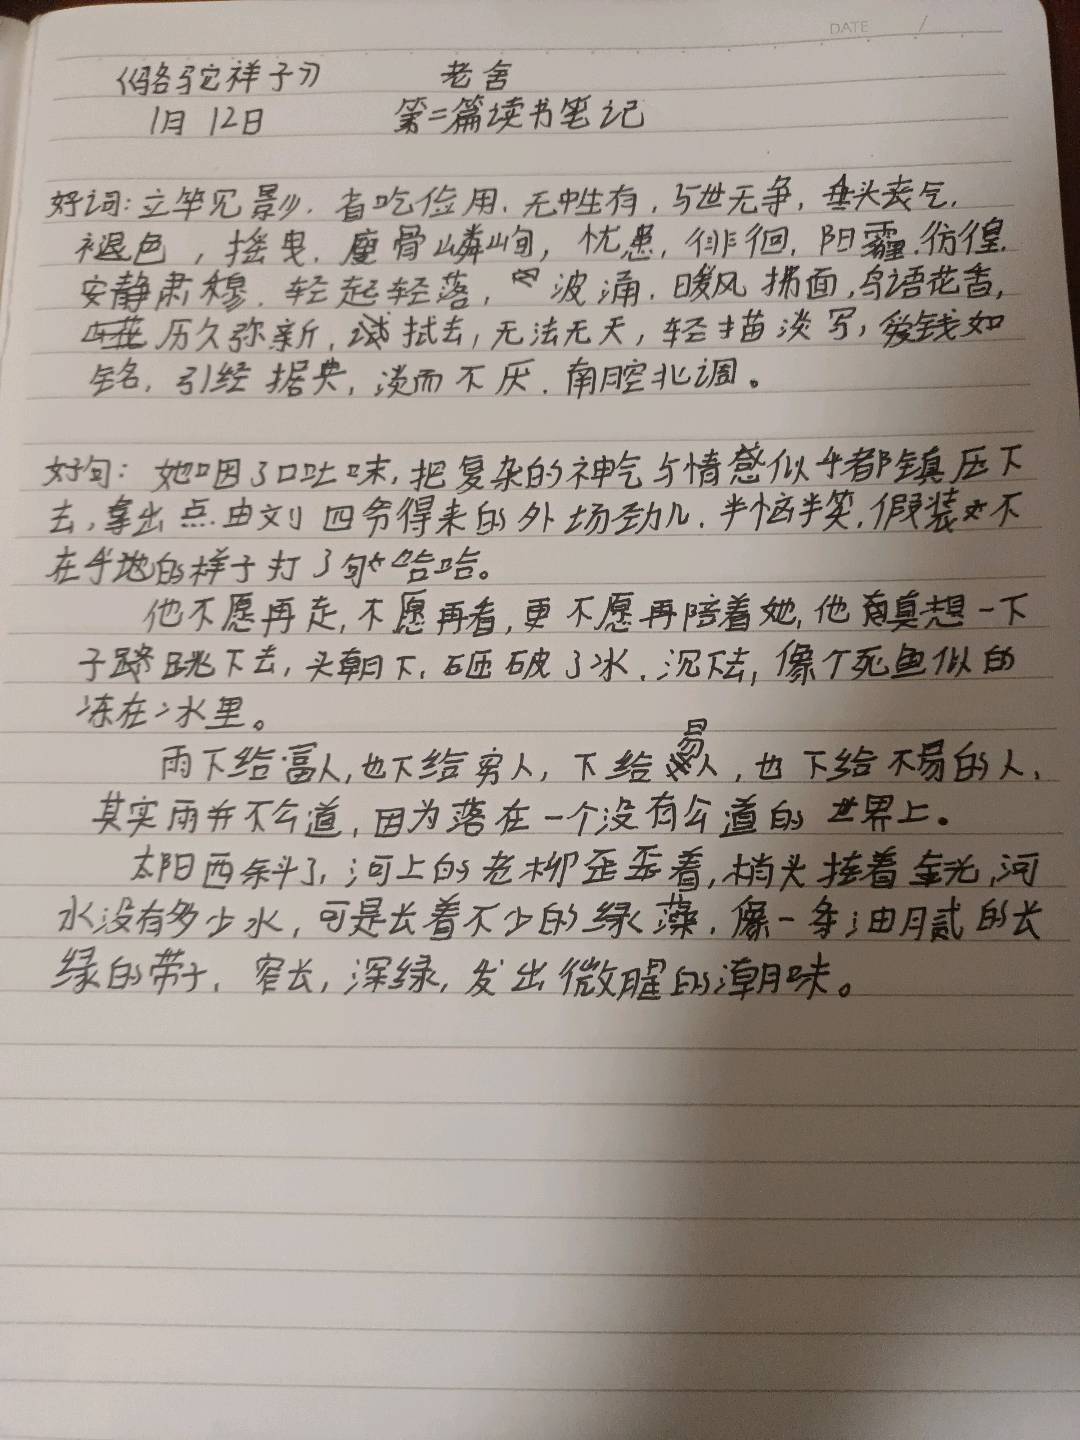 DATE /
《骆驼祥子》 老舍
1月12日 第二篇读书笔记
好词：立竿见影．省吃俭用．无中生有，与世无争，垂头丧气．
褪色，摇曳．瘦骨嶙峋，忧患，徘徊．阳霾．彷徨．
安静肃穆．轻起轻落，波涌．暖风拂面，鸟语花香，
历久弥新，拭去，无法无天，轻描淡写，爱钱如
铭．引经据典，淡而不厌．南腔北调。
好句：她咽了口吐味，把复杂的神气与情感似乎都镇压下
去，拿出点由刘四爷得来的外场劲儿．半恼半笑．假装不
在乎地的样子打了句哈哈。
他不愿再走，不愿再看，更不愿再陪着她，他真想一下
子跳下去，头朝下．砸破了冰．沉下去，像个死鱼似的
冻在冰里。
雨下给富人，也下给穷人，下给易人，也下给不易的人．
其实雨并不公道，因为落在一个没有公道的世界上．
太阳西斜了，河上的老柳歪歪着，梢头挂着金光，河
水没有多少水，可是长着不少的绿藻．像一条油腻的长
绿的带子．窄长，深绿，发出微腥的潮味。